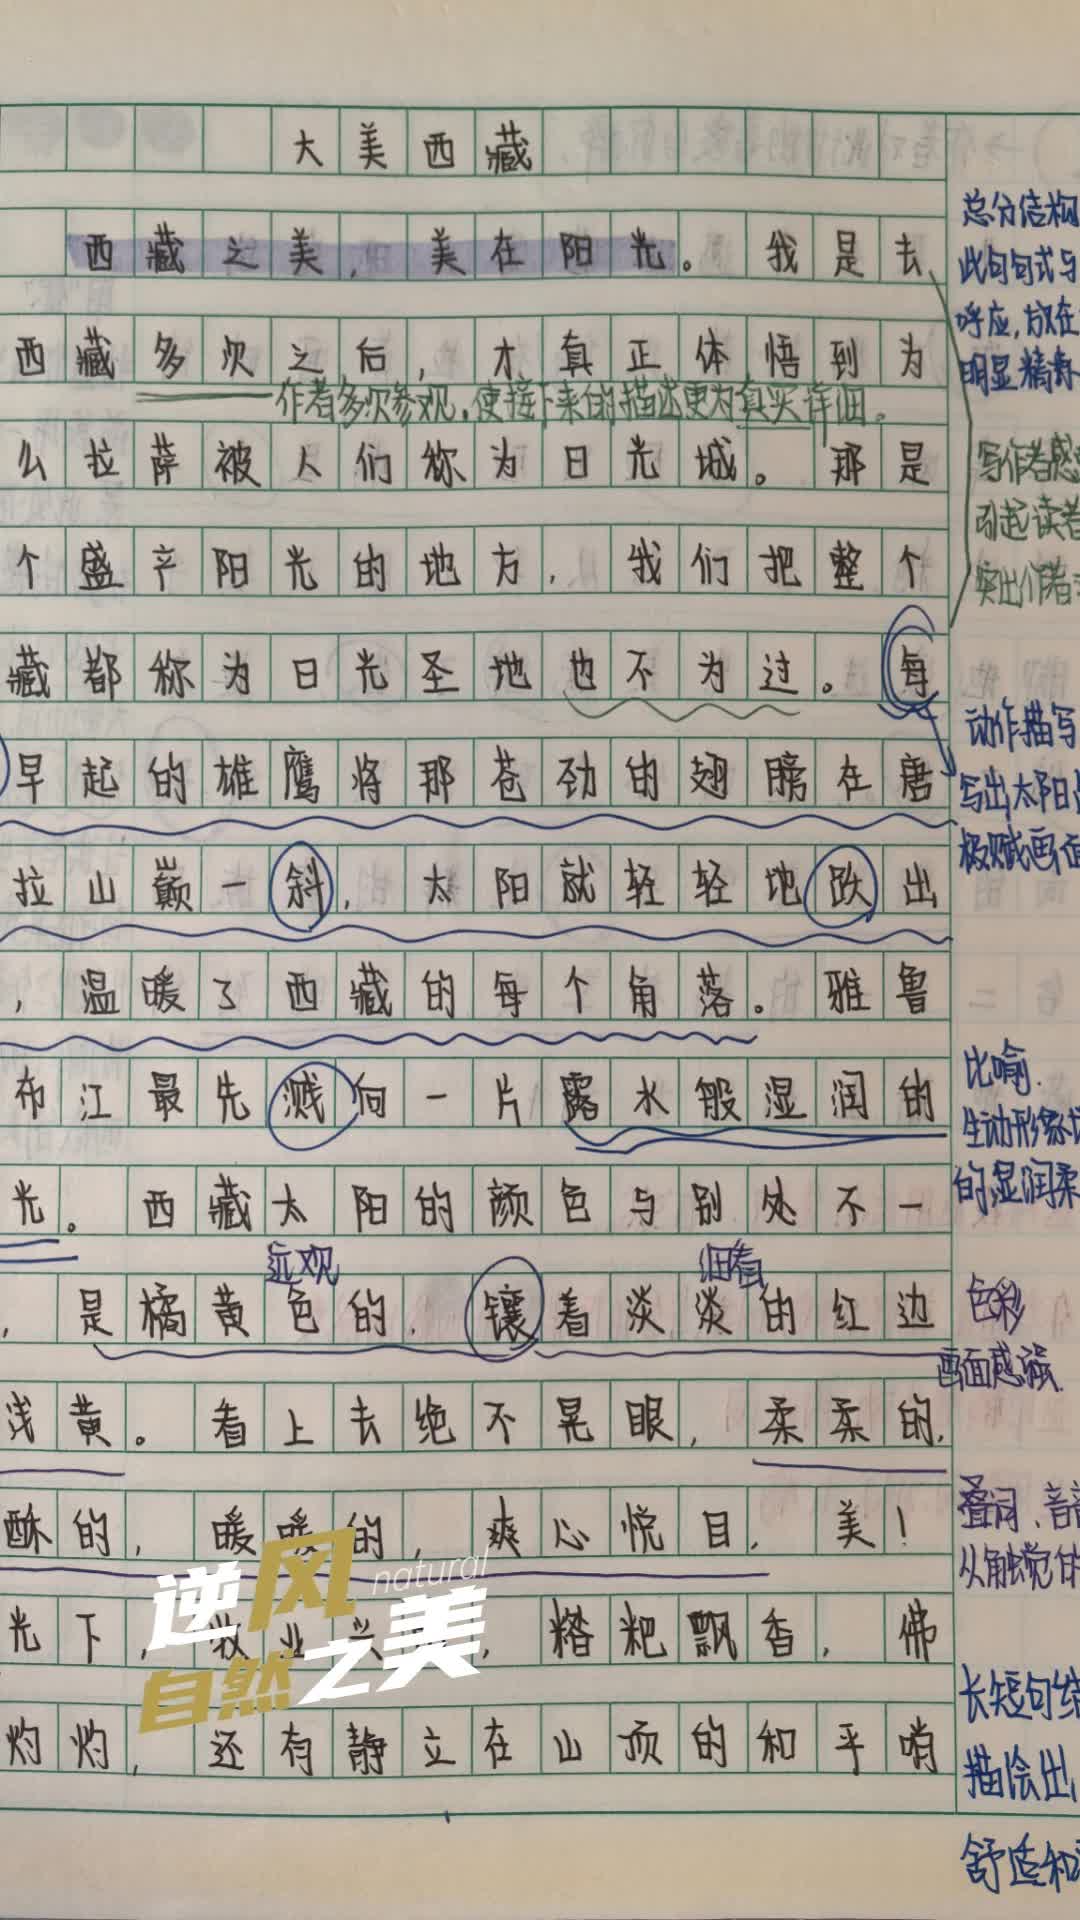 大美西藏
西藏之美，美在阳光。我是去
西藏多次之后，才真正体悟到为
作者多次参观，使接下来的描述更为真实详细。
么拉萨被人们称为日光城。那是
个盛产阳光的地方，我们把整个
藏都称为日光圣地也不为过。每
早起的雄鹰将那苍劲的翅膀在唐
拉山巅一斜，太阳就轻轻地跌出
，温暖了西藏的每个角落。雅鲁
布江最先溅向一片露水般湿润的
光。西藏太阳的颜色与别处不一
远观 细看
，是橘黄色的，镶着淡淡的红边
浅黄。看上去绝不晃眼，柔柔的，
酥的，暖暖的，爽心悦目，美！
光下，牧业兴，糌粑飘香，佛
灼灼，还有静立在山顶的和平哨
总分结构
此句句式与
呼应，放在
明显精
写作者感
引起读者
突出作者
动作描写
写出太阳
极赋画面
比喻．
生动形象
的湿润柔
色彩
画面感强．
叠词、音
从触觉的
长短句结
描绘出
舒适和
逆风
natural
自然之美